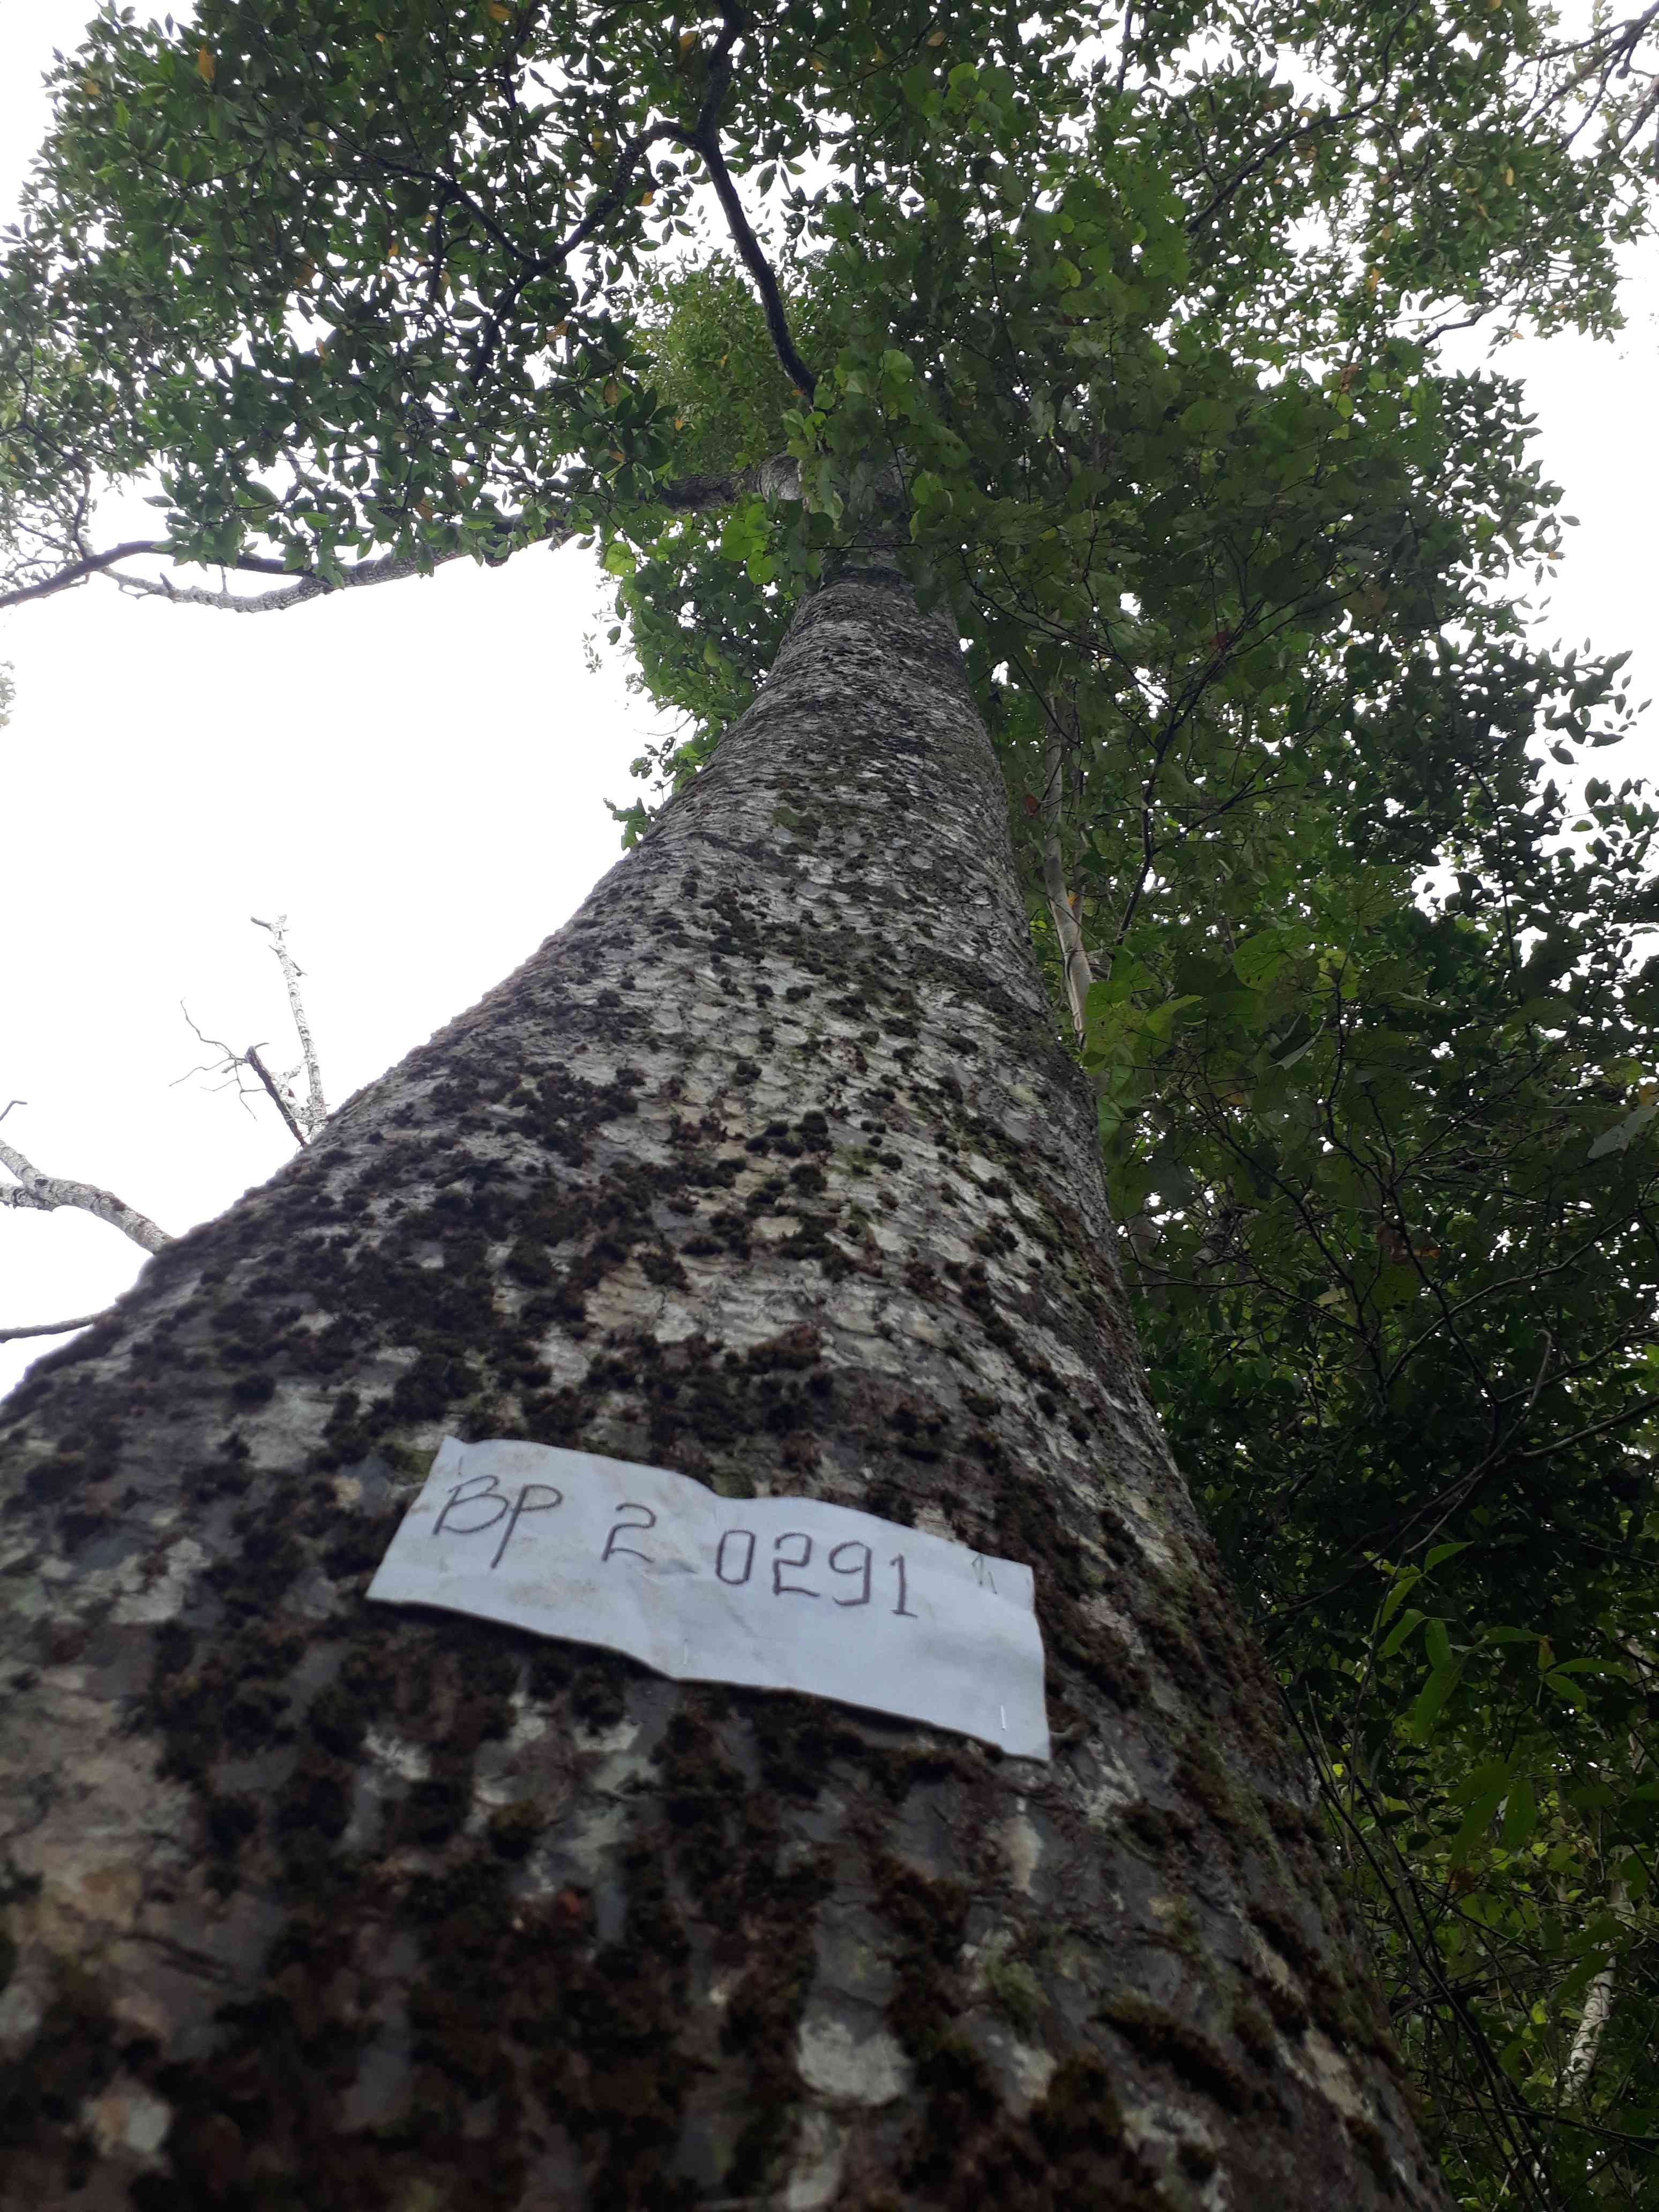 BP 2 0291